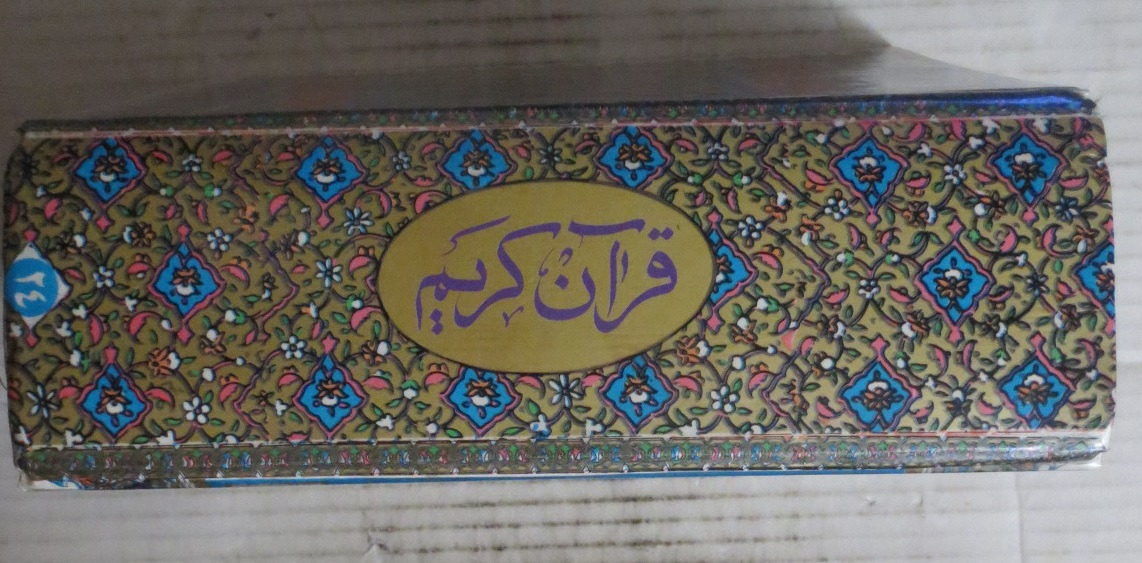 قرآن کریم
۲۴